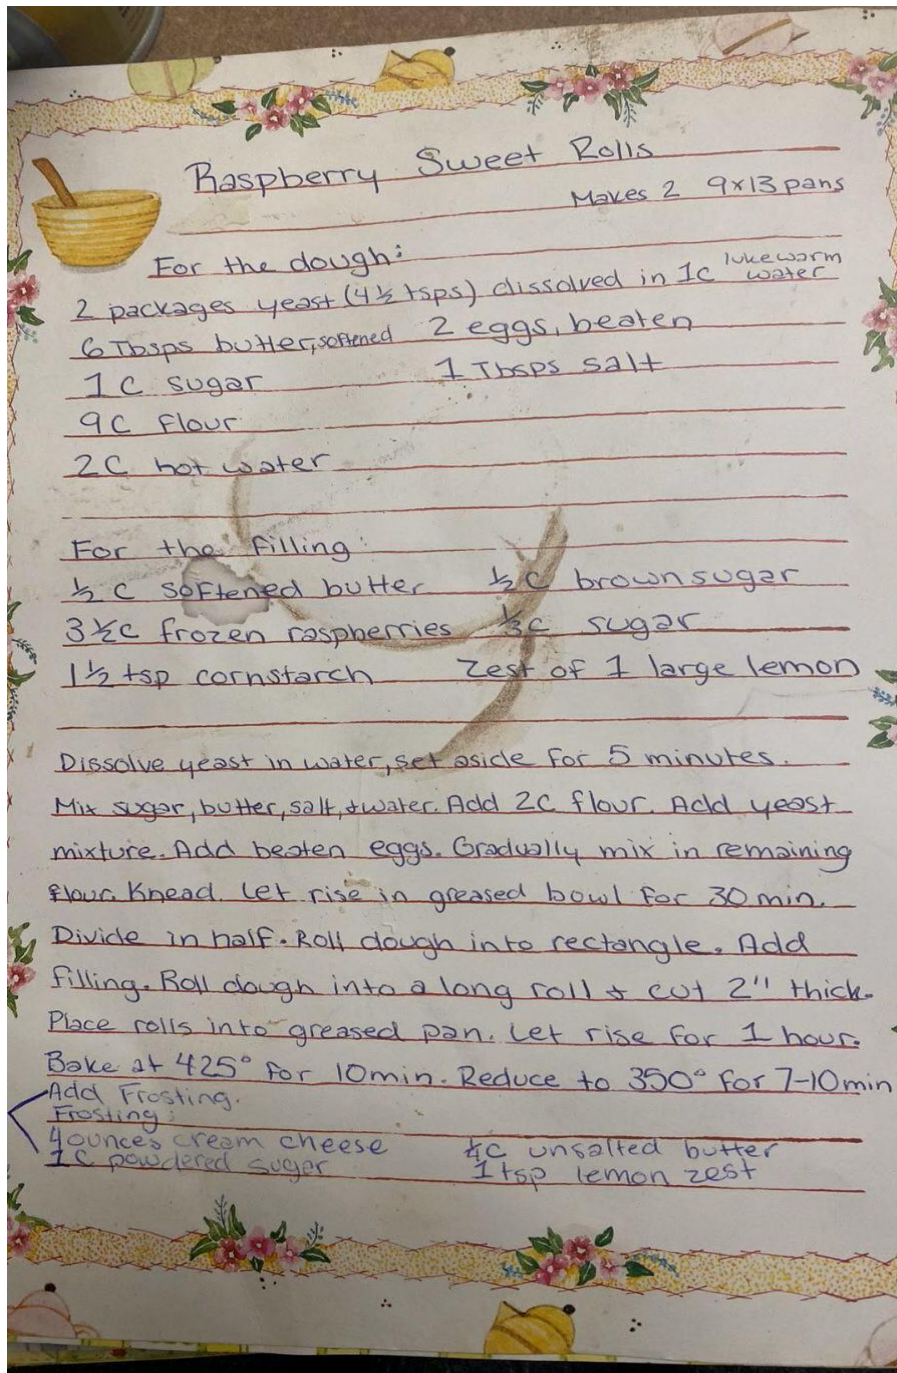 Raspberry Sweet Rolls
Makes 2 9x13 pans
For the dough:
2 packages yeast (4½ tsps) dissolved in 1c lukewarm water
6 Tbsps butter, softened 2 eggs, beaten
1 C sugar 1 Tbsps salt
9C flour
2C hot water
For the filling:
½ C softened butter ½ C brown sugar
3½c frozen raspberries ⅓c sugar
1½ tsp cornstarch Zest of 1 large lemon
Dissolve yeast in water, set aside for 5 minutes.
Mix sugar, butter, salt, + water. Add 2C flour. Add yeast
mixture. Add beaten eggs. Gradually mix in remaining
flour. Knead. Let rise in greased bowl for 30 min.
Divide in half. Roll dough into rectangle. Add
filling. Roll dough into a long roll + cut 2" thick.
Place rolls into greased pan. Let rise for 1 hour.
Bake at 425° for 10min. Reduce to 350° for 7-10min
Add Frosting.
Frosting:
4ounces cream cheese ¼c unsalted butter
1C powdered sugar 1 tsp lemon zest